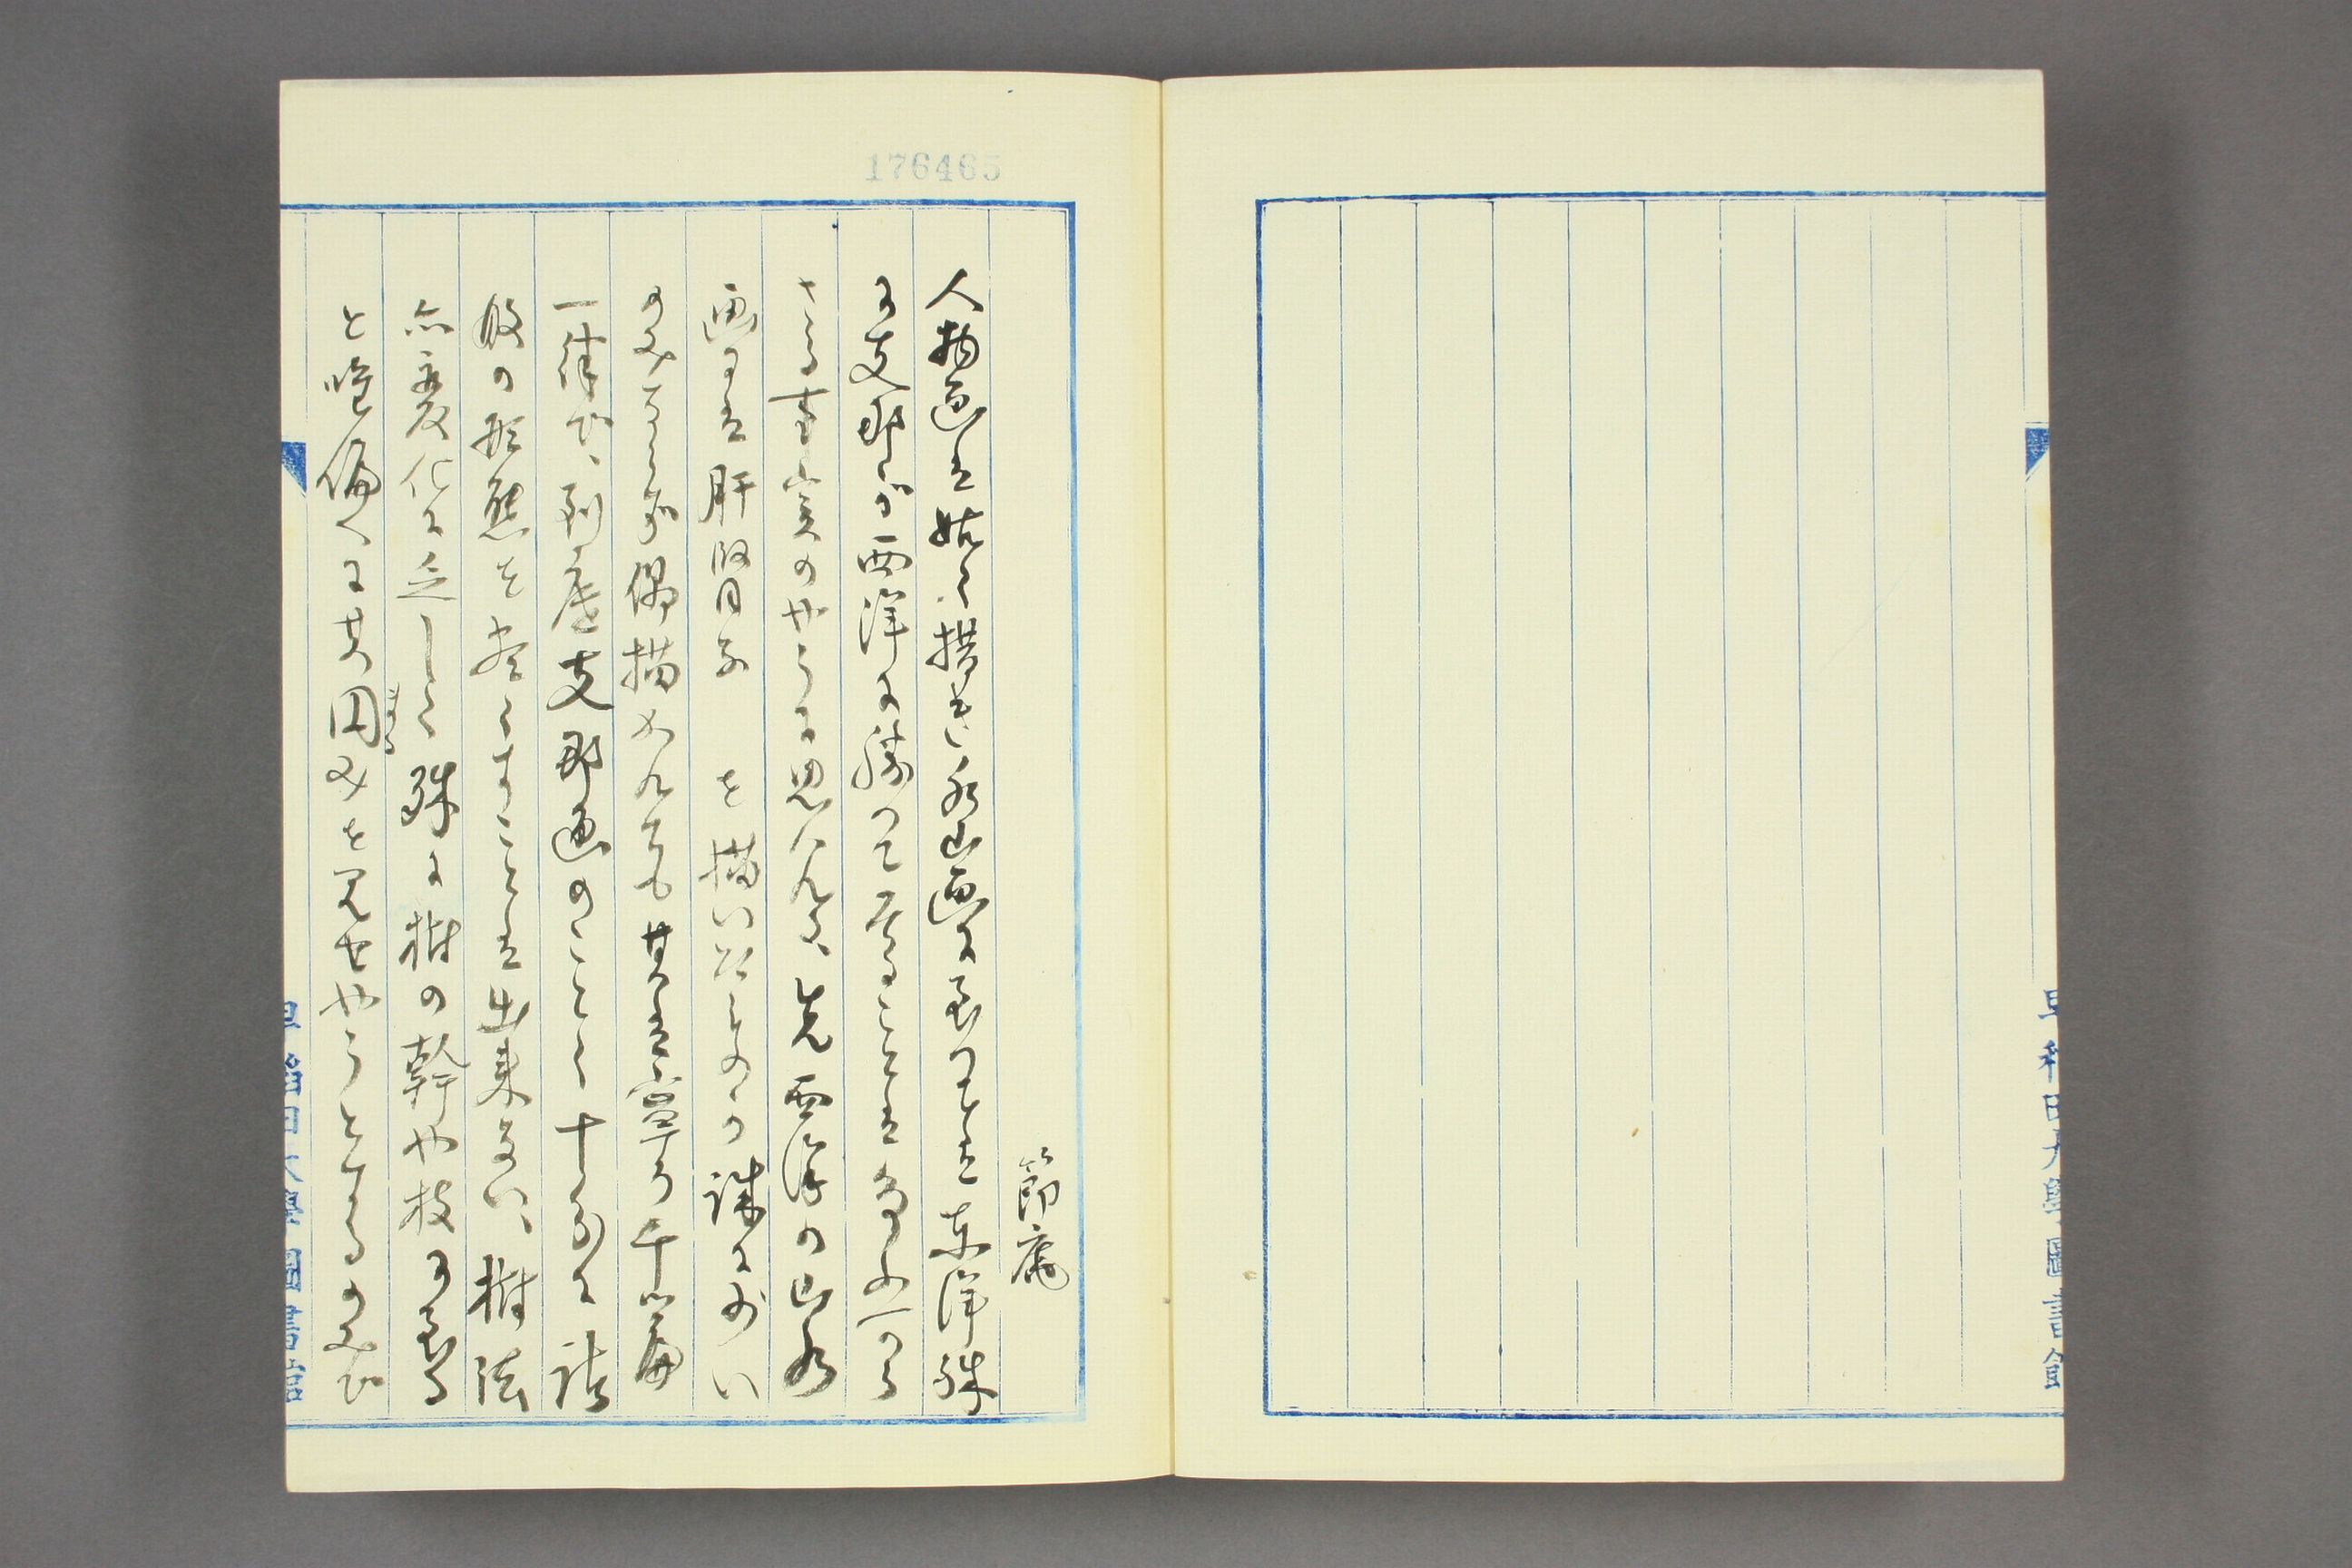 早稲田大學圖書館
176465
節庵
人物画は姑く措き、水山画に至つては東洋殊
に支那が西洋に勝つて居ることは
さる事実のやうに思はれる、先西洋の山水
画には肝腎な を描いたものが誠に少い
のみならず偶描かれても其は寧ろ千篇
一律で、到底支那画のことく十分に諸
般の形態を尽くすことは出来ない、樹法
亦変化に乏しく殊に樹の幹や枝に至る
と唯偏へに其円みを見せやうとするのみで
早稲田大學圖書館